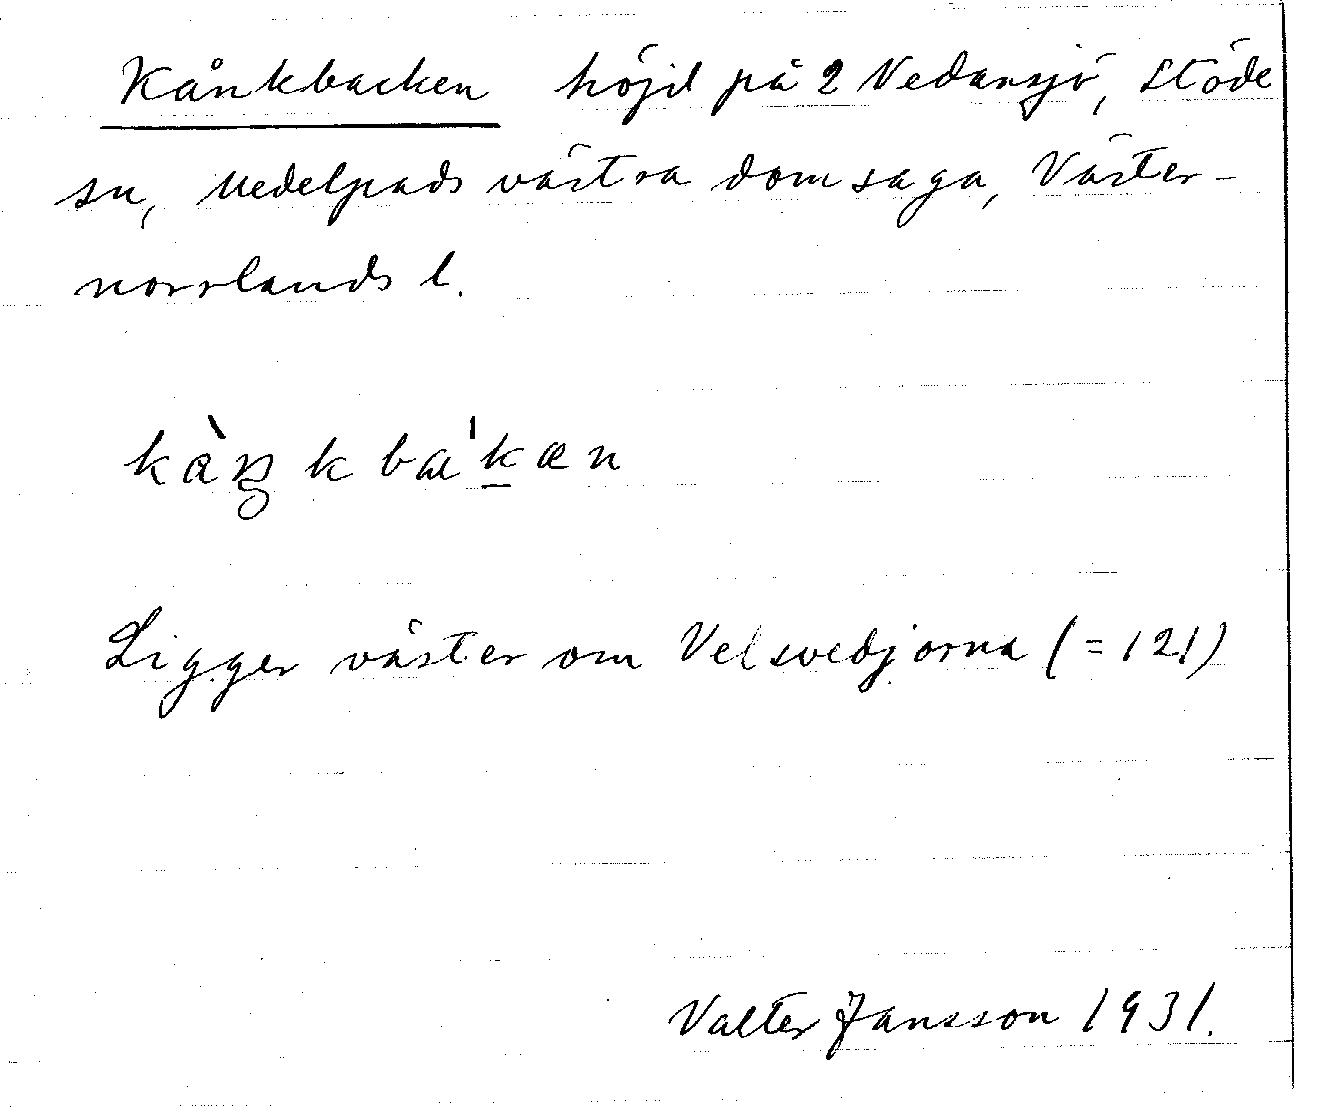 Kånkbacken höjd på 2 Vedansjö, Stöde
sn, Medelpads västra domsaga, Väster-
norrlands l.
kàŋkba'kæn
Ligger väster om Velsvedjorna (=121)
Valter Jansson 1931.